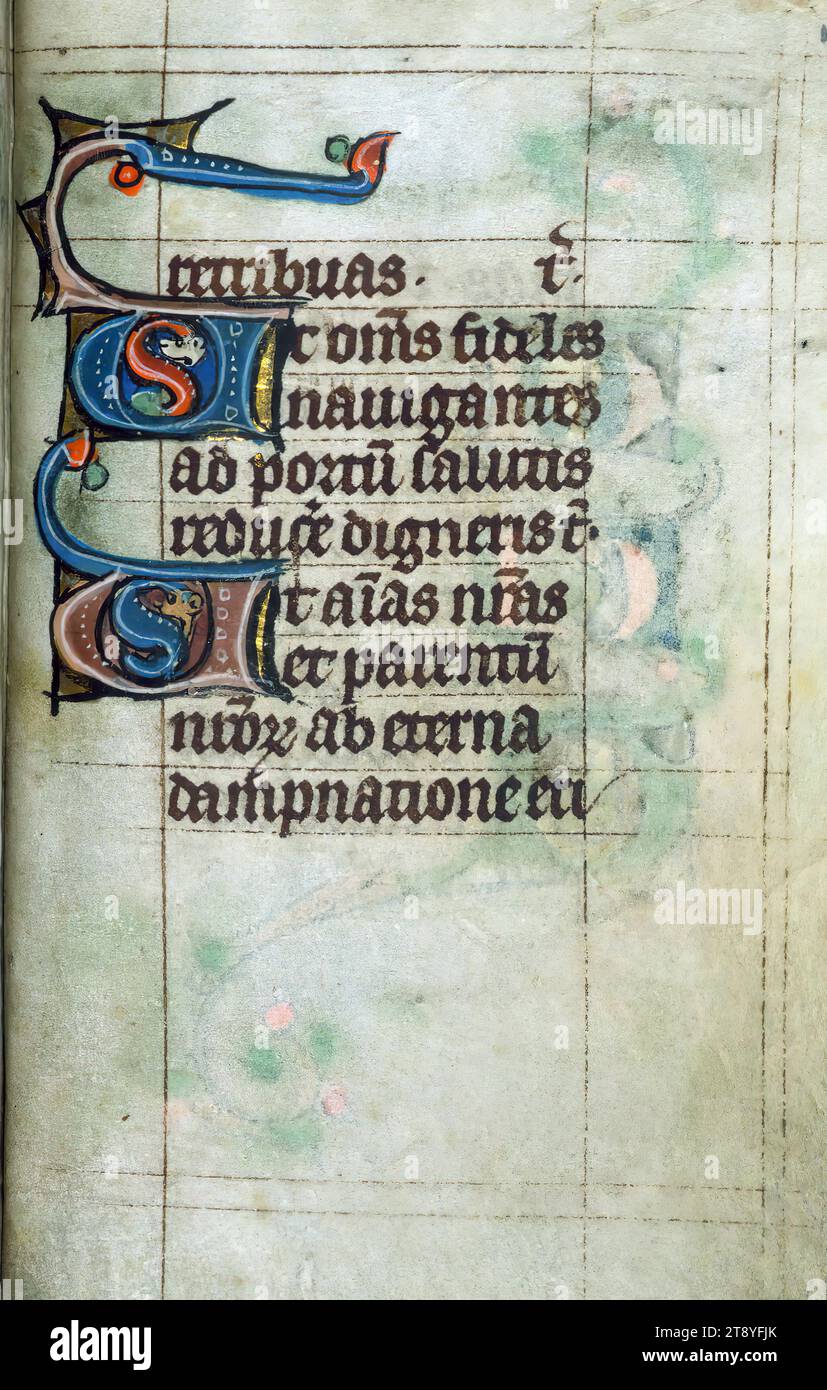 retribuas. t̄.
Et om̄s fideles
nauigantes
ad portū salutis
reducˀe digneris t̄.
Et aīas nr̄as
et parentū
nr̄oꝝ ab eterna
dampnatione eri
alamy
alamy
alamy
Image ID: 2T8YFJK
www.alamy.com